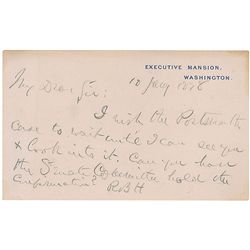 EXECUTIVE MANSION,
WASHINGTON.
10 Jany 1878
My Dear Sir:
I wish the Portsmouth
case to wait until I can see you
& look into it. Can you have
the Senate Committee hold the
Confirmation?
RBH